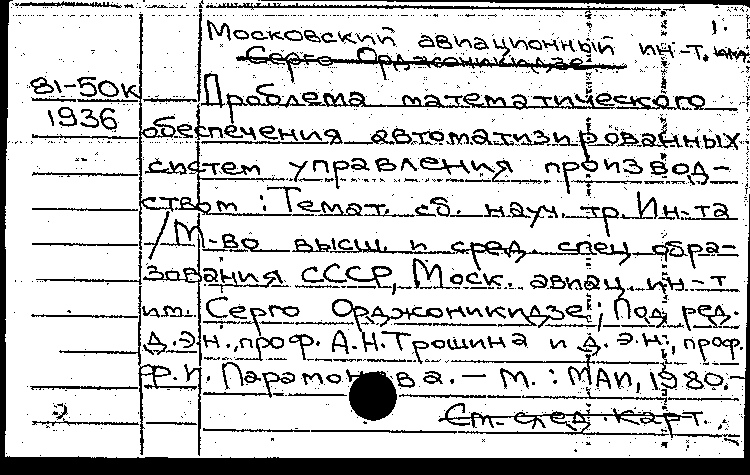 1.
Московский авиационный ин-т. им.
Серго Орджоникидзе
81-50к Проблема математического
1936 обеспечения автоматизированных
систем управления производ-
ством : Темат. сб. науч. тр. Ин-та
/ М-во высш. и сред. спец обра-
зования СССР, Моск. авиац. ин-т
им. Серго Орджоникидзе ; Под ред.
д.э.н., проф. А.Н. Трошина и д.э.н., проф.
Ф.И. Парамонова. — М. : МАИ, 1980.-
2 См. след. карт.